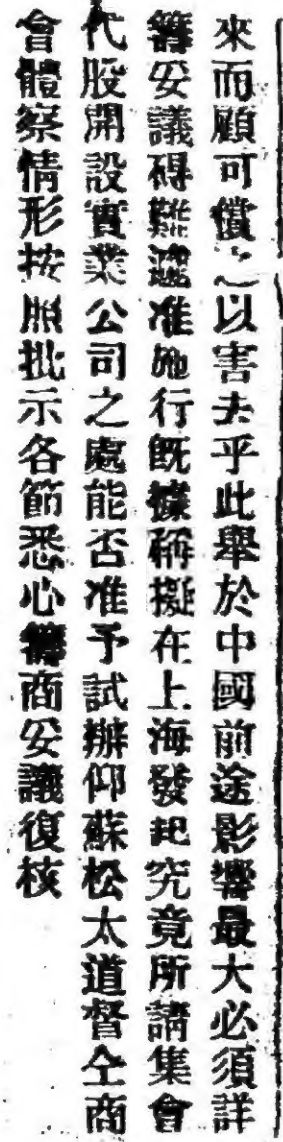 來而顧可償之以害去乎此舉於中國前途影響最大必須詳
籌妥議碍難遽准施行既據稱擬在上海發起究竟所請集會
代股開設實業公司之處能否准予試辦仰蘇松太道督仝商
會體察情形按照批示各節悉心籌商妥議復核